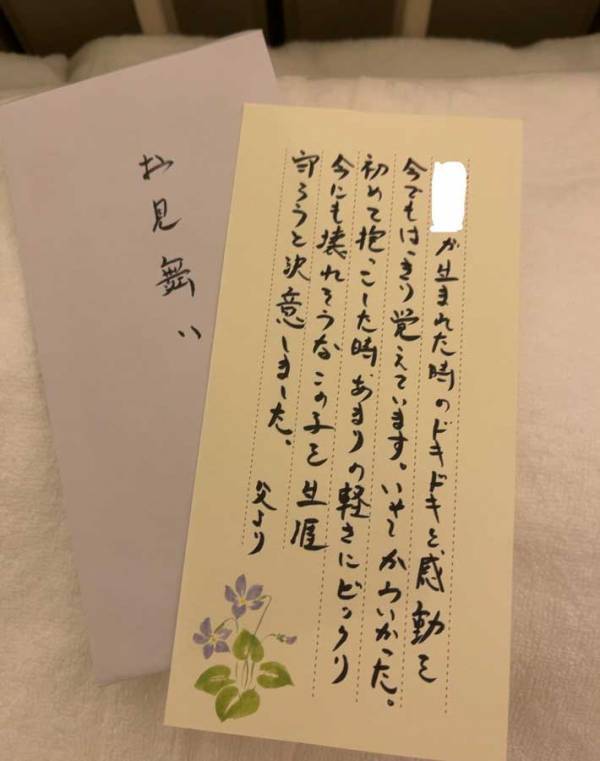 お見舞い
が生まれた時のドキドキと、感動を
今でもはっきり覚えています。いやでかわいかった。
初めて抱っこした時、あまりの軽さにビックリ
今にも壊れそうなこの子を生涯
守ろうと決意しました。
父より